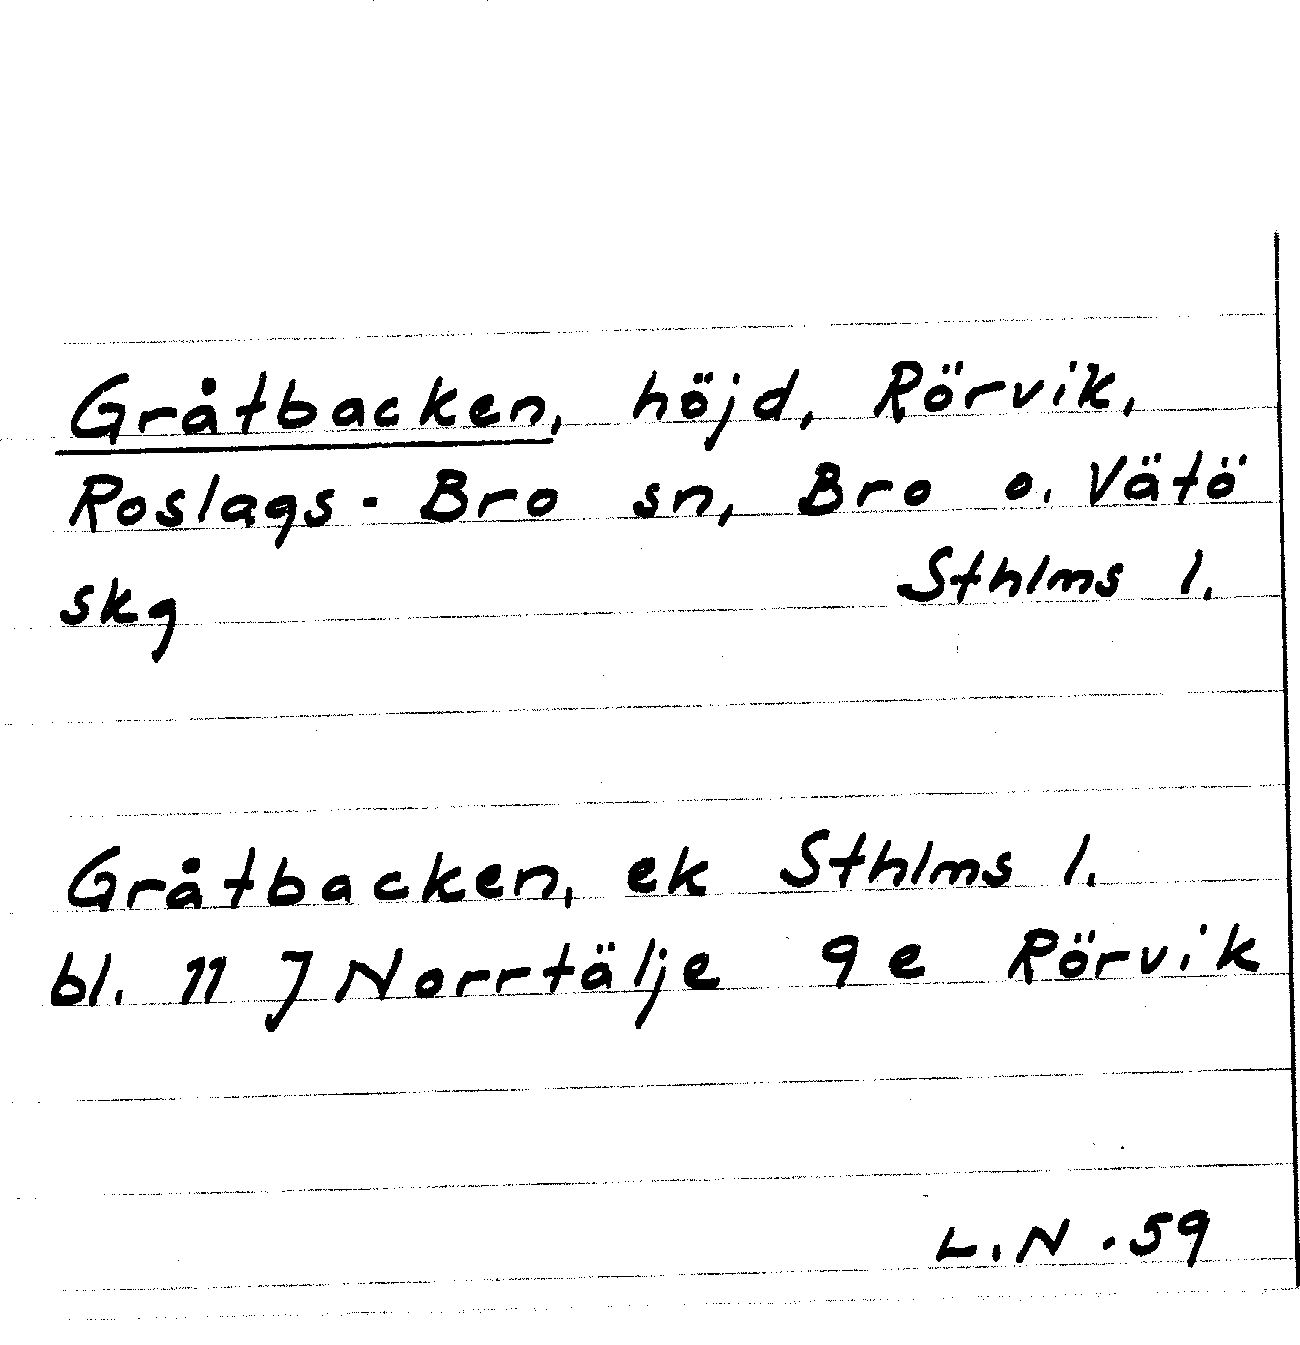 Gråtbacken, höjd, Rörvik,
Roslags-Bro sn, Bro o. Vätö
skg Sthlms l.
Gråtbacken, ek Sthlms l.
bl. 11 J Norrtälje 9e Rörvik
L.N. 59